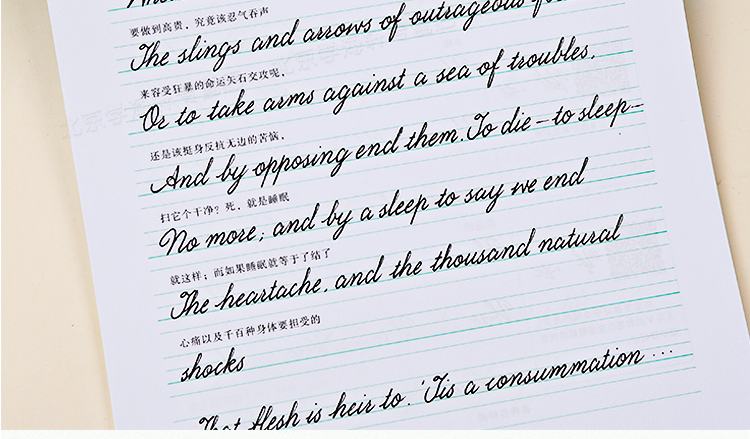 要做到高贵, 究竟该忍气吞声
The slings and arrows of outrageous
来容受狂暴的命运矢石交攻呢,
Or to take arms against a sea of troubles,
还是该挺身反抗无边的苦恼,
And by opposing end them. To die – to sleep –
扫它个干净? 死, 就是睡眠
No more; and by a sleep to say we end
就这样; 而如果睡眠就等于了结了
The heartache, and the thousand natural
心痛以及千百种身体要担受的
shocks
That flesh is heir to. 'Tis a consummation ...